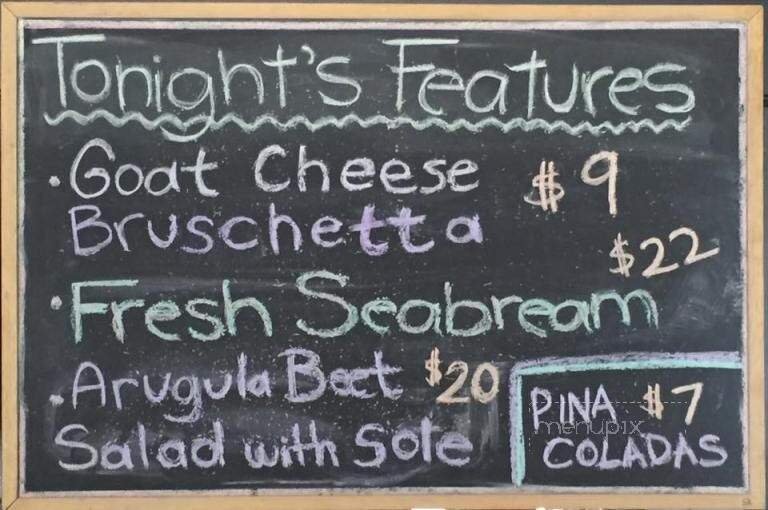 Tonight's Features
• Goat Cheese $9
Bruschetta
$22
• Fresh Seabream
• Arugula Beet $20
Salad with Sole
PINA $7
menupix
COLADAS